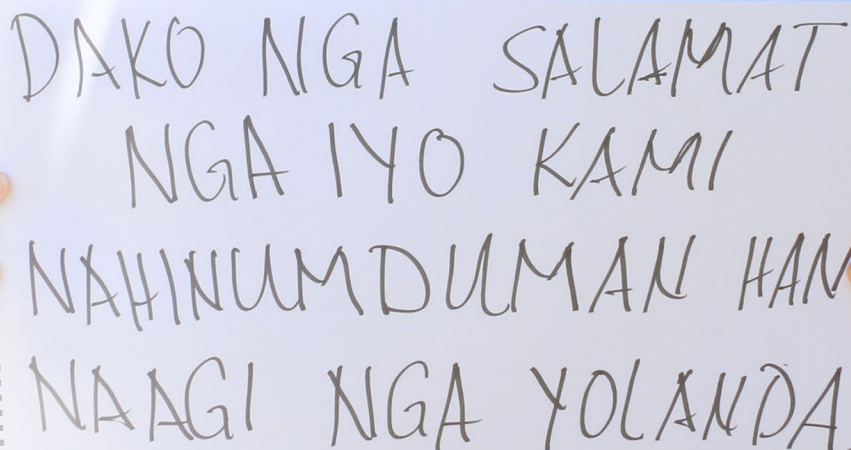 DAKO NGA SALAMAT
NGA IYO KAMI
NAHINUMDUMAN HAN
NAAGI NGA YOLANDA